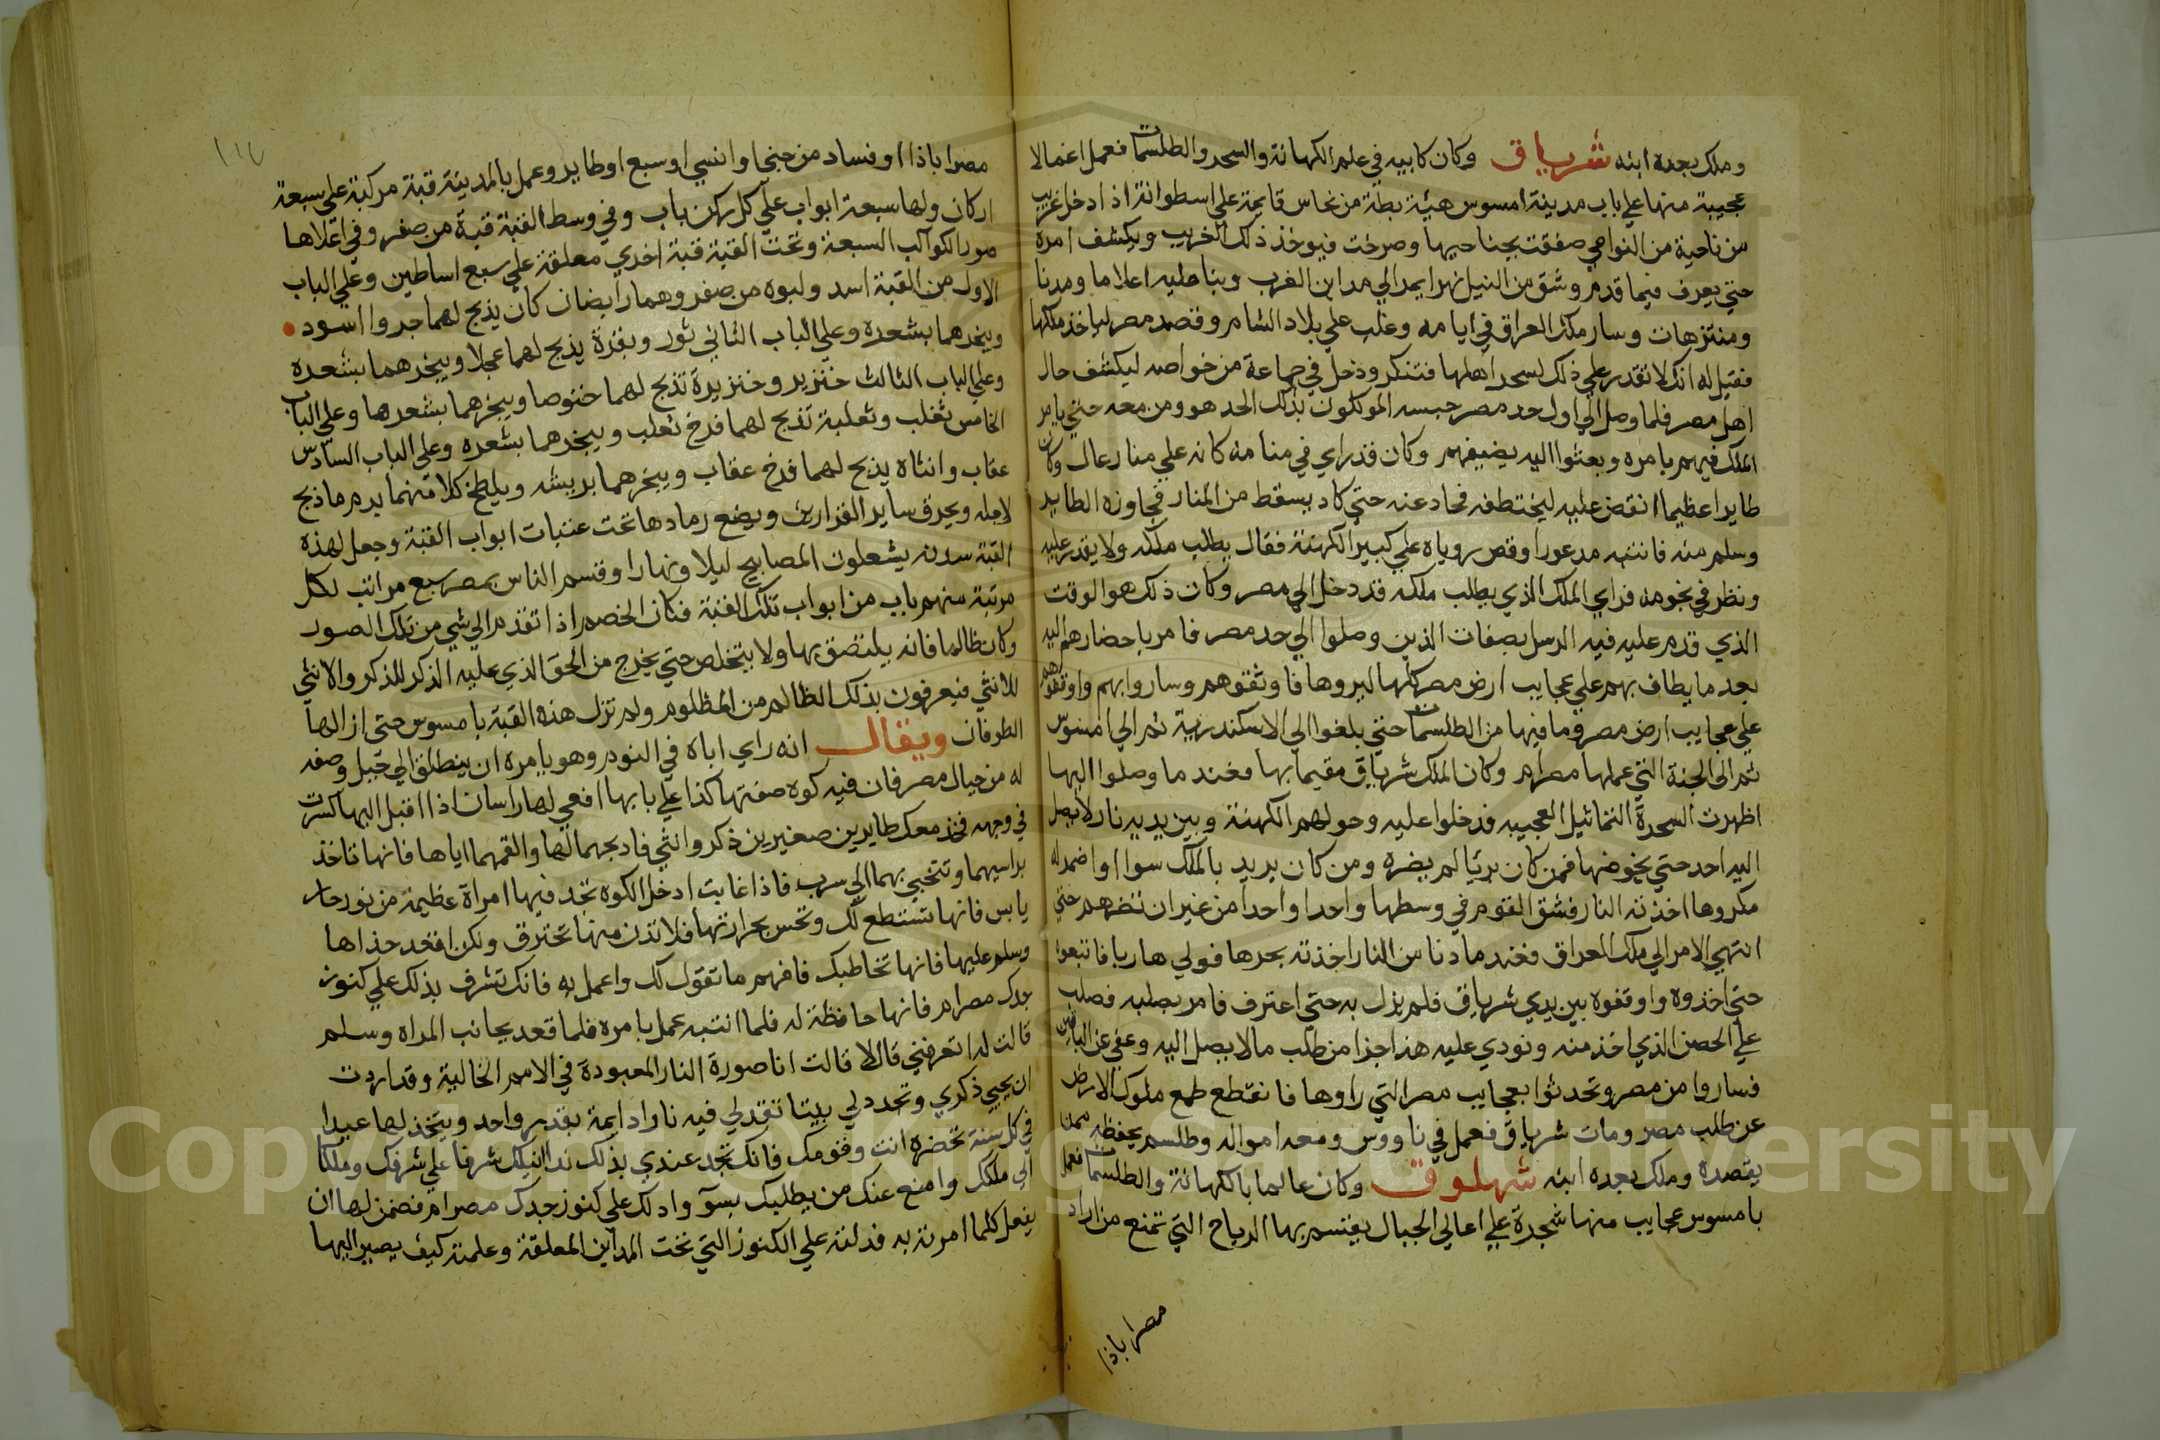 وملك بعده ابنه شرياق وكان كابيه في علم الكهانة والسحر والطلسمات فعمل اعمالا
عجيبة منها علي باب مدينة امسوس هيئة بطة من نحاس قايمة علي اسطوانة اذا دخل غريب
من ناحية من النواحي صفقت بجناحيها وصرخت فيوخذ ذلك الغريب ويكشف امره
حتي يعرف فيما قدم وشق من النيل نهرا يمد الي مداين الغرب وبنا عليه اعلاما ومدنا
ومنتزهات وسار ملك العراق في ايامه وغلب علي بلاد الشام وقصد مصر لياخذ ملكها
فقيل له انك لا تقدر علي ذلك لسحر اهلها فتنكر ودخل في جماعة من خواصه ليكشف حال
اهل مصر فلما وصل الي اول حد مصر حبسه الموكلون بذلك الحد هو ومن معه حتي يامر
الملك فيهم بامره وبعثوا اليه بصفتهم وكان قد راي في منامه كانه علي منار عال وكان
طايرا عظيما انقض عليه ليختطفه فحاد عنه حتي كاد يسقط من المنار فجاوزه الطاير
وسلم منه فانتبه مدعورا وقص روياه علي كبير الكهنة فقال يطلب ملكك ولا يقدر عليه
ونظر في نجومه فراي الملك الذي يطلب ملكه قد دخل الي مصر وكان ذلك هو الوقت
الذي قدم عليه فيه الرسل بصفات الذين وصلوا الي حد مصر فامر باحضارهم اليه
بعد ما يطاف بهم علي عجايب ارض مصر كلها ليروها فاوثقوهم وساروا بهم واوقفوهم
علي عجايب ارض مصر وما فيها من الطلسمات حتي بلغوا الي الاسكندرية ثم الي امسوس
ثم الي الجنة التي عملها مصرام وكان الملك شرياق مقيما بها فعند ما وصلوا اليها
اظهرت السحرة التماثيل العجيبه فدخلوا عليه وحولهم الكهنة وبين يديه نار لا يصل
اليه احد حتي يخوضها فمن كان بريا لم يضره ومن كان يريد بالملك سوا او اضمر له
مكروها اخذته النار فشق القوم في وسطها واحدا واحدا من غير ان تضرهم حتي
انتهي الامر الي ملك العراق فعند ما دنا من النار اخذته بحرها فولي هاربا فاتبعوا
حتي اخذوه واوقفوه بين يدي شرياق فلم يزل به حتي اعترف فامر بصلبه فصلب
علي الحصن الذي اخذ منه ونودي عليه هذا جزا من طلب ما لا يصل اليه وعفي عن الباقين
فساروا من مصر وتحدثوا بعجايب مصر التي راوها فانقطع طمع ملوك الارض
عن طلب مصر ومات شرياق فعمل في ناووس ومعه امواله وطلسم يحفظه ممن
يقصده وملك بعده ابنه شهلوق وكان عالما بالكهانة والطلسمات فعمل
بامسوس عجايب منها شجرة علي اعالي الجبال يقتسم بها الرياح التي تمنع من اراد
مصر اباذا
مصر اباذا او فساد من جني او انسي او سبع او طاير وعمل بالمدينة قبة مركبة علي سبعة
اركان ولها سبعة ابواب علي كل ركن باب وفي وسط القبة قبة من صفر وفي اعلاها
صور الكواكب السبعة وتحت القبة قبة اخري معلقة علي سبع اساطين وعلي الباب
الاول من القبة اسد ولبوه من صفر وهما رابضان كان يذبح لهما جروا اسود
ويبخرهما بشعره وعلي الباب الثاني ثور وبقرة يذبح لهما عجلا ويبخرهما بشعره
وعلي الباب الثالث خنزير وخنزيرة تذبح لهما خنوصا ويبخرهما بشعرها وعلي الباب
الخامس ثعلب وثعلبة تذبح لهما فرخ ثعلب ويبخرهما بشعره وعلي الباب السادس
عقاب وانثاه يذبح لهما فرخ عقاب ويبخرهما بريشه ويلطخ كلا منهما بدم ما ذبح
لاجله ويحرق ساير القرابين ويضع رمادها تحت عتبات ابواب القبة وجعل لهذه
القبة سدنه يشعلون المصابيح ليلا ونهارا وقسم الناس بمصر سبع مراتب لكل
مرتبة منهم باب من ابواب تلك القبة فكان الخصم اذا تقدم الي شي من تلك الصور
وكان ظالما فانه يلتصق بها ولا يتخلص حتي يخرج من الحق الذي عليه الذكر للذكر والانثي
للانثي فيعرفون بذلك الظالم من المظلوم ولم تزل هذه القبة بامسوس حتي ازالها
الطوفان ويقال انه راي اباه في النوم وهو يامره ان ينطلق الي جبل وصفه
له من جبال مصر فان فيه كوه صفتها كذا علي بابها افعي لها راسان اذا اقبل اليها كشرت
في وجهه فخذ معك طايرين صغيرين ذكر وانثي فاذبحهما لها والقمهما اياها فانها تاخذ
براسيهما وتتنحي بهما الي سرب فاذا غابت ادخل الكوه تجد فيها امراة عظيمة من نور حار
يابس فانها تستطع لك وتحس بحرارتها فلا تدن منها تحترق ولكن اقعد حذاها
وسلم عليها فانها تخاطبك فافهم ما تقول لك واعمل به فانك تشرف بذلك علي كنوز
جدك مصرام فانها حافظة له فلما انتبه عمل بامره فلما قعد بجانب المراه وسلم
قالت له اتعرفني قال لا قالت انا صورة النار المعبودة في الامم الخالية وقد اردت
ان يحيي ذكري وتجدد لي بيتا تقد لي فيه نارا دايمة بقدر واحد ويتخذ لها عيدا
في كل سنة تحضره انت وقومك فانك تجد عندي بذلك ندا انيلك شرفا علي شرفك وملكا
الي ملكك وامنع عنك من يطلبك بسوء وادلك علي كنوز جدك مصرام فضمن لها ان
يفعل كلما امرته به فدلته علي الكنوز التي تحت المداين المعلقة وعلمته كيف يصير اليها
Copyright © King Saud University